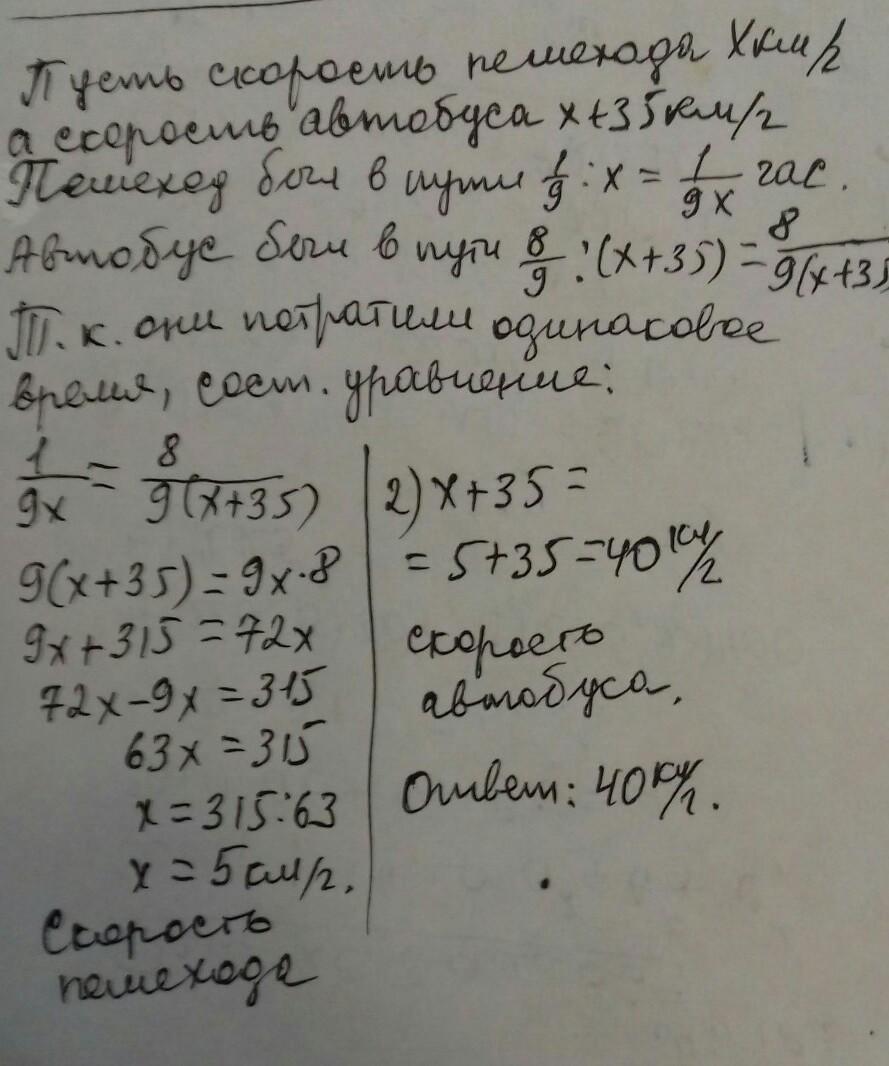 Пусть скорость пешехода X км/ч
а скорость автобуса x+35км/ч
Пешеход был в пути 1/9 : x = 1/9x час.
Автобус был в пути 8/9 : (x+35) = 8/9(x+35
Т.к. они потратили одинаковое
время, сост. уравнение:
1/9x = 8/9(x+35)
9(x+35) = 9x·8
9x+315 = 72x
72x-9x = 315
63x = 315
x = 315:63
x = 5 км/ч.
Скорость
пешехода
2) x+35 =
= 5+35 = 40 км/ч
скорость
автобуса.
Ответ: 40 км/ч.